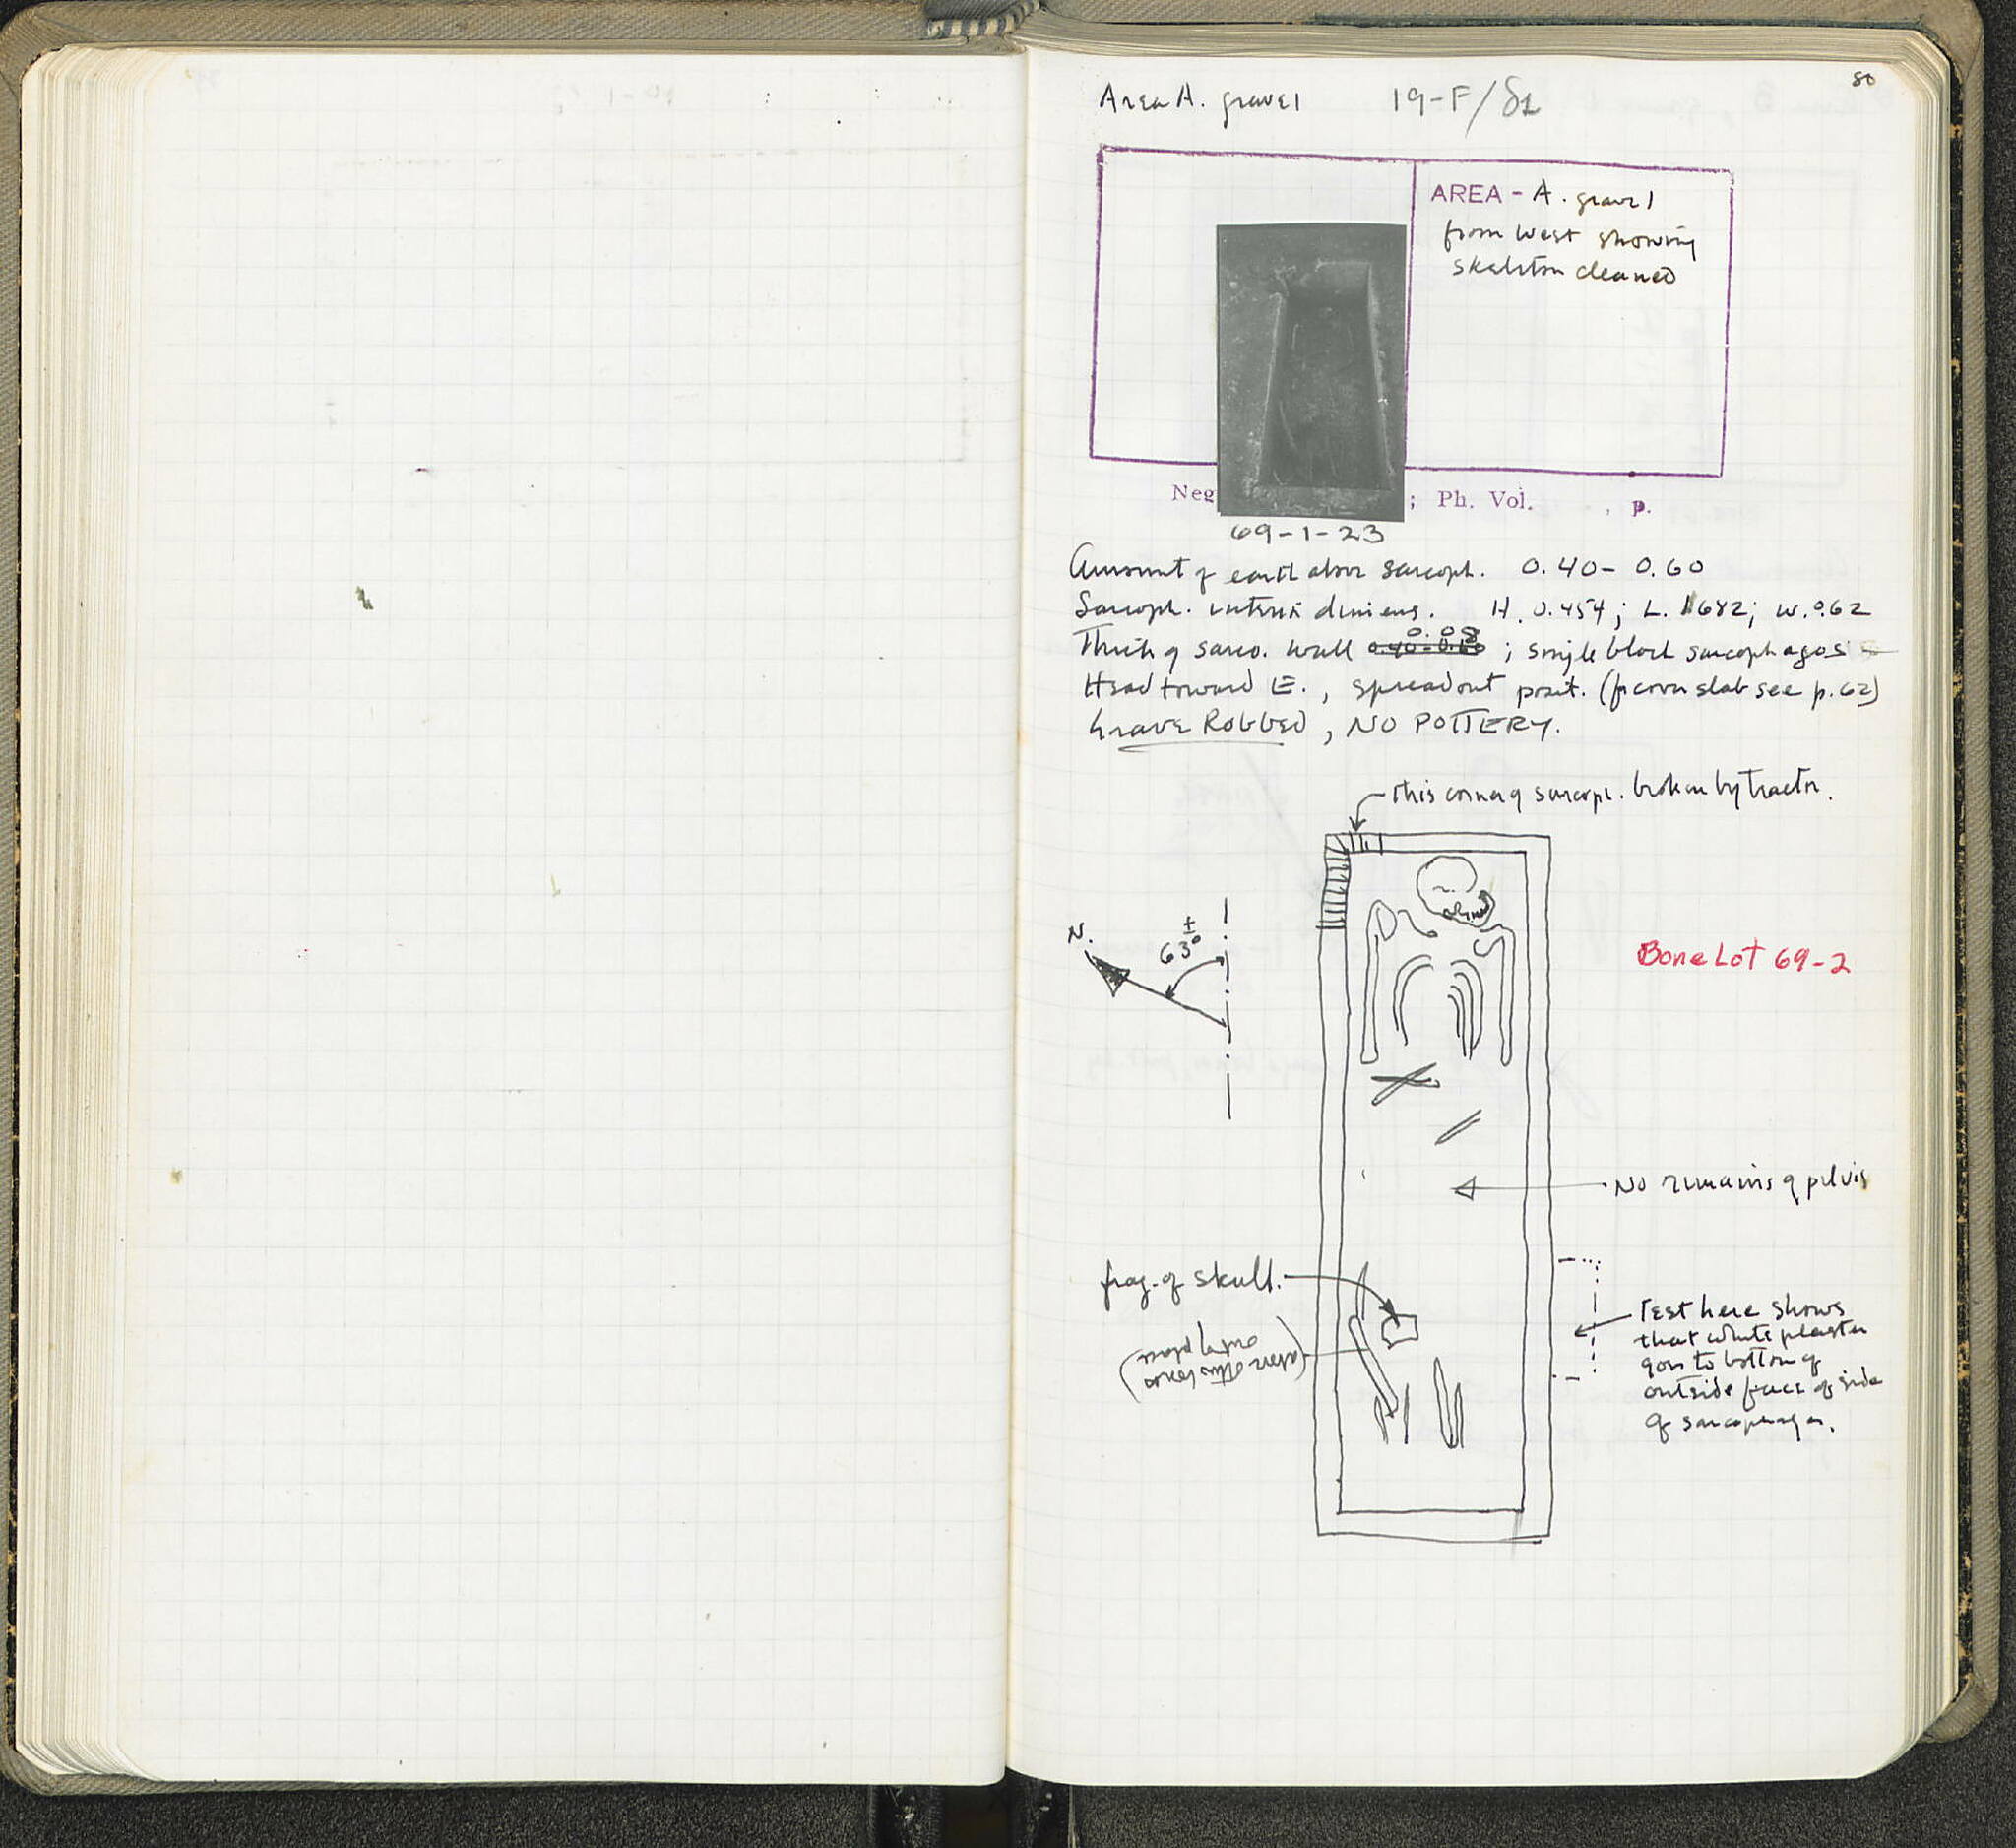 80
Area A. grave 1 19-F/δ1
AREA - A. grave 1
from west showing
skeleton cleaned
Neg ; Ph. Vol. , p.
69-1-23
Amount of earth above sarcoph. 0.40 - 0.60
Sarcoph. interior dimens. H. 0.454; L. 1.682; W. 0.62
Thick of sarco. wall 0.40-0.60 0.08 ; single block sarcophagos
Head toward E., spread out posit. (for cover slab see p. 62)
Grave Robbed, NO POTTERY.
This corner of sarcoph. broken by tractor.
N.
± 63°
Bone Lot 69-2
No remains of pelvis
frag. of skull.
Test here shows
that white plaster
goes to bottom of
outside face of side
of sarcophagos.